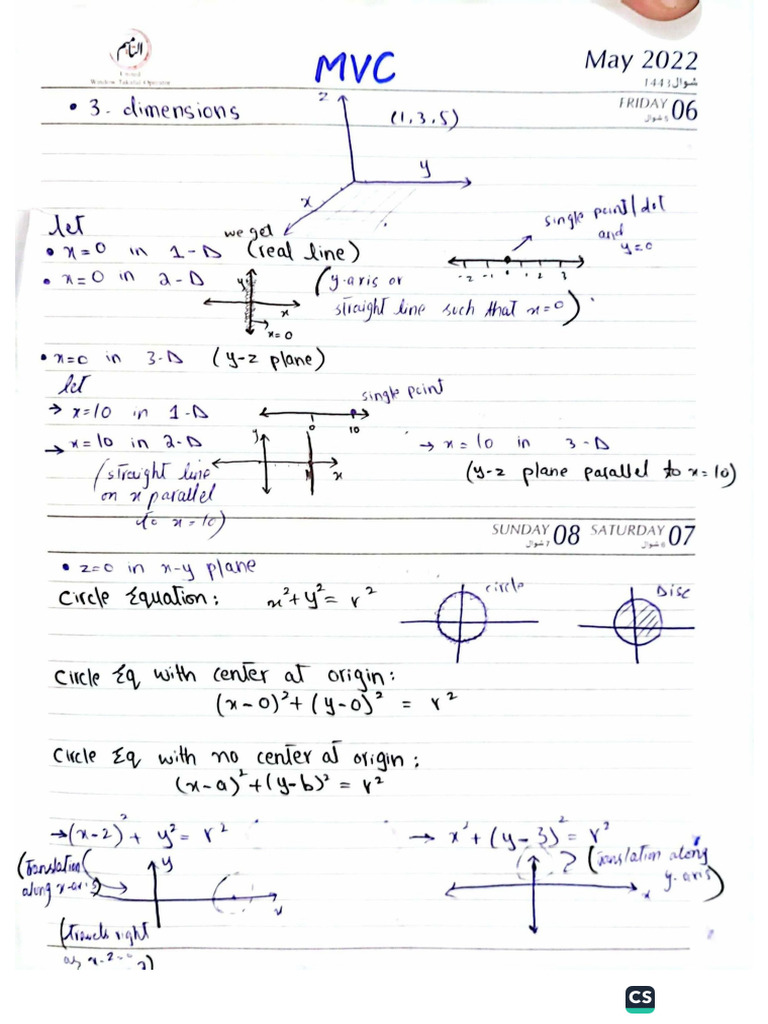 التأمين
Window Takaful Operator
MVC
May 2022
شوال 1443
• 3. dimensions
FRIDAY 06
z
(1,3,5)
y
x
let
we get
• x=0 in 1-D (real line)
single point/dot
and
y=0
-2 -1 0 1 2 3
• x=0 in 2-D
y
x
x=0
(y-axis or
straight line such that x=0)
• x=0 in 3-D (y-z plane)
let
→ x=10 in 1-D
single point
0 10
→ x=10 in 2-D
y
x
(straight line
on x parallel
to x=10)
→ x=10 in 3-D
(y-z plane parallel to x=10)
SUNDAY 08 SATURDAY 07
• z=0 in x-y plane
Circle Equation: x²+y²= r²
circle
Disc
Circle Eq with center at origin:
(x-0)²+(y-0)² = r²
Circle Eq with no center at origin:
(x-a)²+(y-b)² = r²
→(x-2)²+ y²= r²
→ x²+(y-3)²= r²
(Translation
along x-axis)
y
x
(Translation along
y-axis)
x
(Travels right
as x-2=0
CS